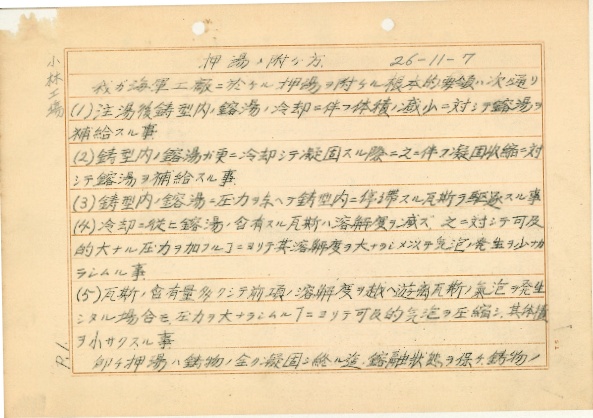 小林工場
押湯ノ附ケ方 26-11-7
我ガ海軍工廠ニ於ケル押湯ヲ附ケル根本的要領ハ次ノ通リ
(1)注湯後鋳型内ノ鎔湯ノ冷却ニ伴フ体積ノ減少ニ対シテ鎔湯ヲ
補給スル事
(2)鋳型内ノ鎔湯ガ更ニ冷却シテ凝固スル際ニ之ニ伴フ凝固収縮ニ対
シテ鎔湯ヲ補給スル事
(3)鋳型内ノ鎔湯ニ圧力ヲ与ヘテ鋳型内ニ停滞スル瓦斯ヲ駆逐スル事
(4)冷却ニ従ヒ鎔湯ノ含有スル瓦斯ハ溶解度ヲ減ズ 之ニ対シテ可及
的大ナル圧力ヲ加フルヿニヨリテ其溶解度ヲ大ナラシメ以テ気泡ノ発生ヲ少ナカ
ラシムル事
(5)瓦斯ノ含有量多クシテ前項ノ溶解度ヲ越ヘ游離瓦斯ノ氣泡ヲ発生
シタル場合モ圧力ヲ大ナラシムルヿニヨリテ可及的気泡ヲ圧縮シ其体積
ヲ小サクスル事
即チ押湯ハ鋳物ノ全ク凝固シ終ル迄鎔融状態ヲ保チ鋳物ノ
P.1.